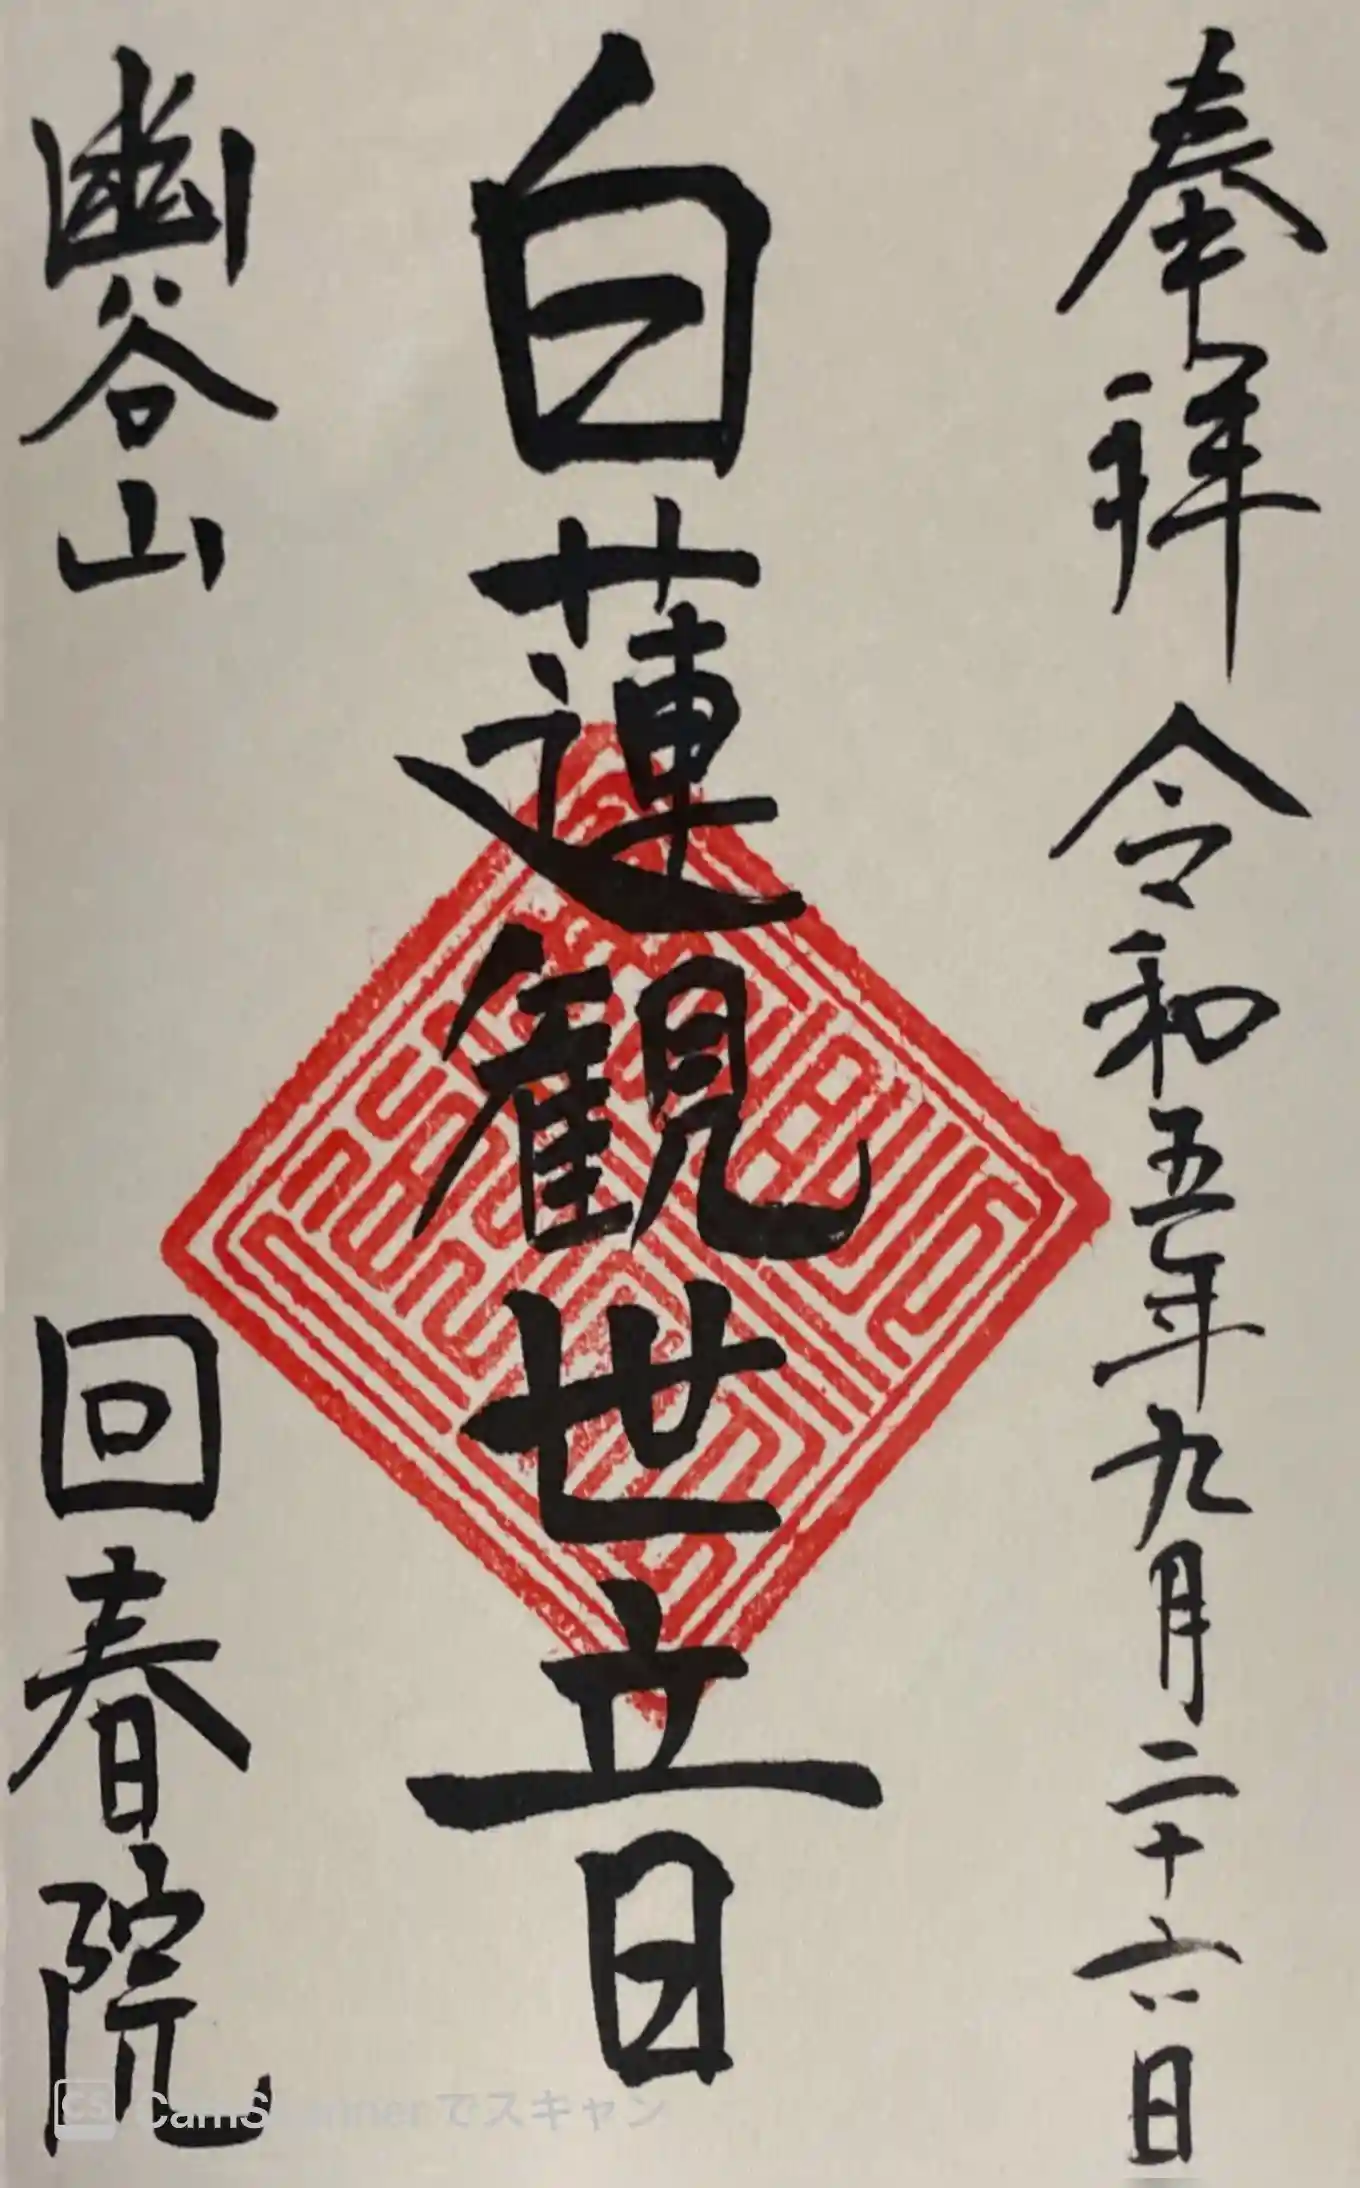 奉拝 令和五年九月二十六日
白蓮観世音
幽谷山 回春院
CS CamScannerでスキャン